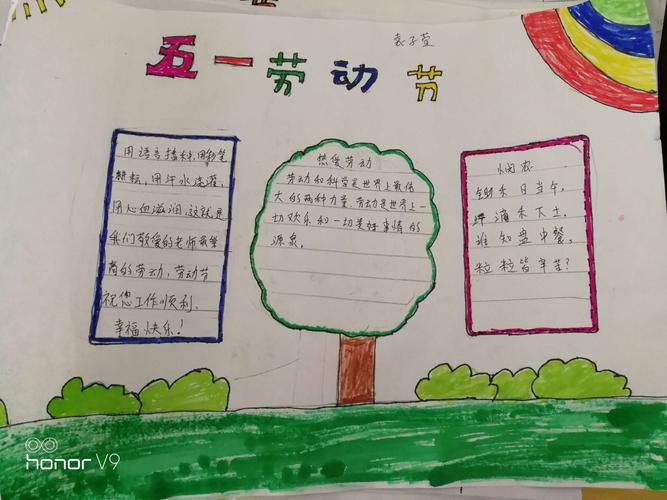 五一劳动节
袁子萱
用语言播种,用彩笔
耕耘,用汗水浇灌,
用心血滋润,这就是
我们敬爱的老师最崇
高的劳动,劳动节
祝您工作顺利,
幸福快乐!
热爱劳动
劳动和科学是世界上最伟
大的两种力量,劳动是世界上一
切欢乐和一切美好事情的
源泉。
悯农
锄禾日当午,
滴禾下土.
谁知盘中餐,
粒粒皆辛苦?
honor V9